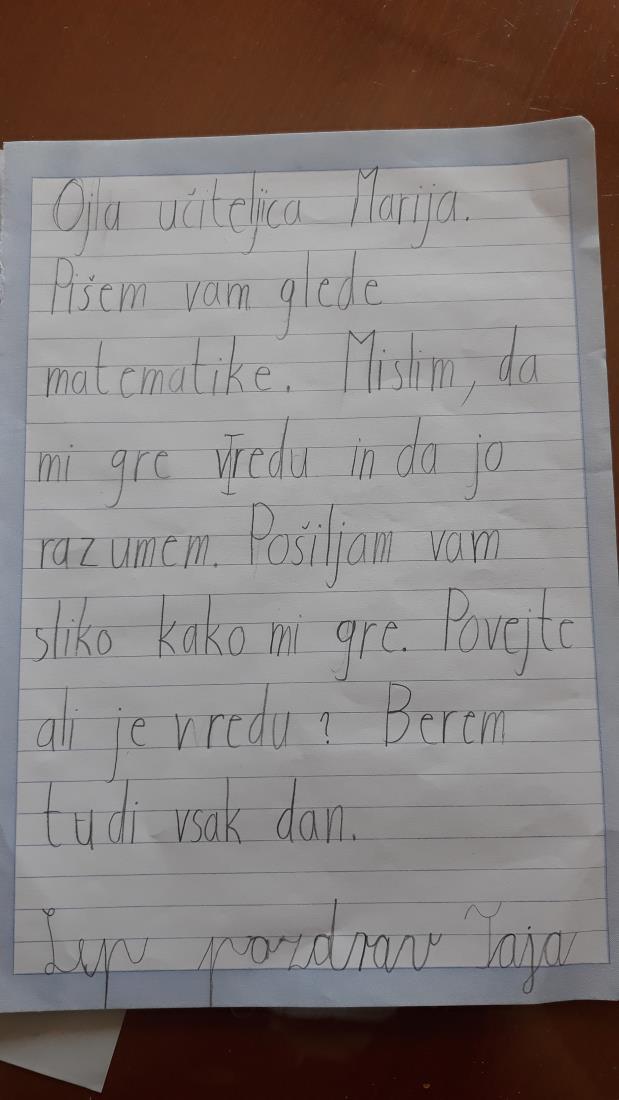 Ojla učiteljica Marija.
Pišem vam glede
matematike. Mislim, da
mi gre vredu in da jo
razumem. Pošiljam vam
sliko kako mi gre. Povejte
ali je vredu? Berem
tudi vsak dan.
Lep pozdrav Taja